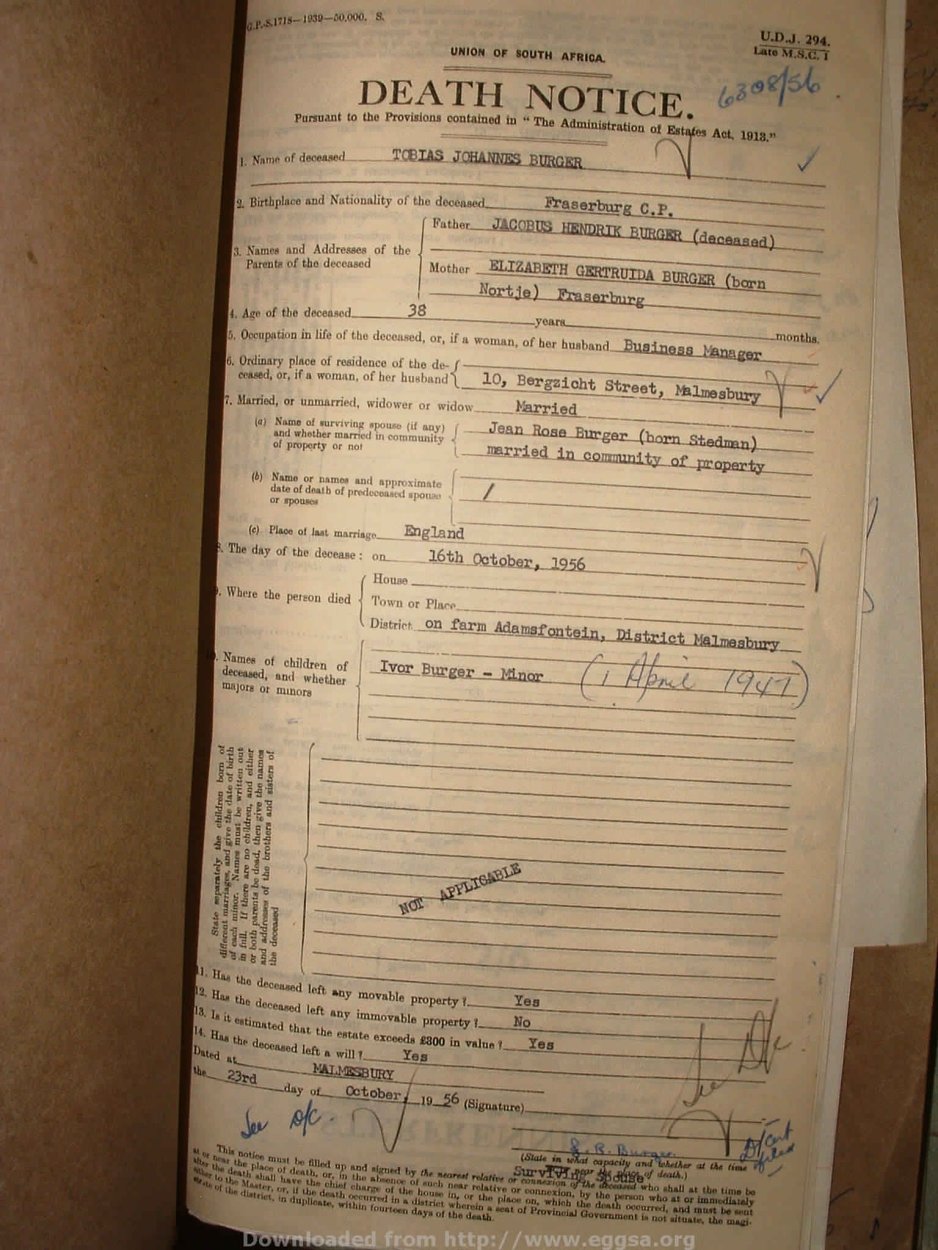 G.P.-S.1718—1939—50,000. S.
U.D.J. 294.
Late M.S.C. 1
UNION OF SOUTH AFRICA.
6308/56
DEATH NOTICE.
Pursuant to the Provisions contained in "The Administration of Estates Act, 1913."
1. Name of deceased TOBIAS JOHANNES BURGER
2. Birthplace and Nationality of the deceased Fraserburg C.P.
3. Names and Addresses of the Parents of the deceased
Father JACOBUS HENDRIK BURGER (deceased)
Mother ELIZABETH GERTRUIDA BURGER (born
Nortje) Fraserburg
4. Age of the deceased 38 years months.
5. Occupation in life of the deceased, or, if a woman, of her husband Business Manager
6. Ordinary place of residence of the de-
ceased, or, if a woman, of her husband 10, Bergzicht Street, Malmesbury
7. Married, or unmarried, widower or widow Married
(a) Name of surviving spouse (if any)
and whether married in community
of property or not
Jean Rose Burger (born Stedman)
married in community of property
(b) Name or names and approximate
date of death of predeceased spouse
or spouses
/
(c) Place of last marriage England
8. The day of the decease: on 16th October, 1956
9. Where the person died
House
Town or Place
District on farm Adamsfontein, District Malmesbury
10. Names of children of
deceased, and whether
majors or minors
Ivor Burger - Minor (1 April 1947)
State separately the children born of
different marriages, and give the date of birth
of each minor. Names must be written out
in full. If there are no children, and either
or both parents be dead, then give the names
and addresses of the brothers and sisters of
the deceased
NOT APPLICABLE
11. Has the deceased left any movable property? Yes
12. Has the deceased left any immovable property? No
13. Is it estimated that the estate exceeds £300 in value? Yes
14. Has the deceased left a will? Yes
Dated at MALMESBURY
the 23rd day of October, 19 56 (Signature)
See D/C
See D/C.
J. R. Burger
D/Cert
filed
(State in what capacity and whether at the time
near the place of death.)
Surviving Spouse
This notice must be filled up and signed by the nearest relative or connexion of the deceased who shall at the time be
at or near the place of death, or, in the absence of such near relative or connexion, by the person who at or immediately
after the death shall have the chief charge of the house in, or the place on, which the death occurred, and must be sent
either to the Master, or, if the death occurred in a district wherein a seat of Provincial Government is not situate, the magi-
strate of the district, in duplicate, within fourteen days of the death.
Downloaded from http://www.eggsa.org